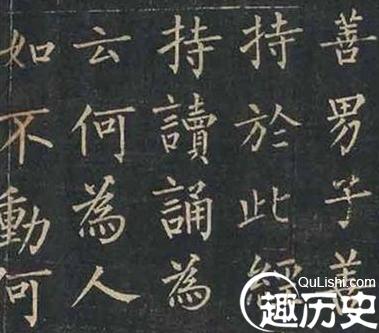 善男子善
持於此經
持讀誦為
云何為人
如不動何
QuLishi.com
趣历史